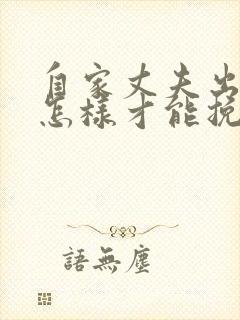 自家丈夫出
怎樣才能挽
語無塵